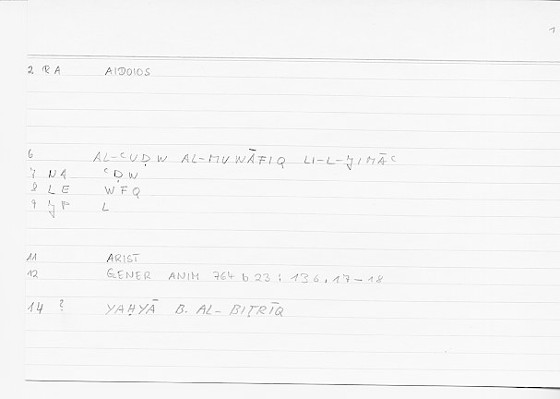 1
2 RA AIDOIOS
6 AL-ʿUḌW AL-MUWĀFIQ LI-L-ǦIMĀʿ
7 NA ʿḌW
8 LE WFQ
9 L
11 ARIST
12 GENER ANIM 764 b 23 : 136, 17-18
14 ? YAḤYĀ B. AL-BIṬRĪQ